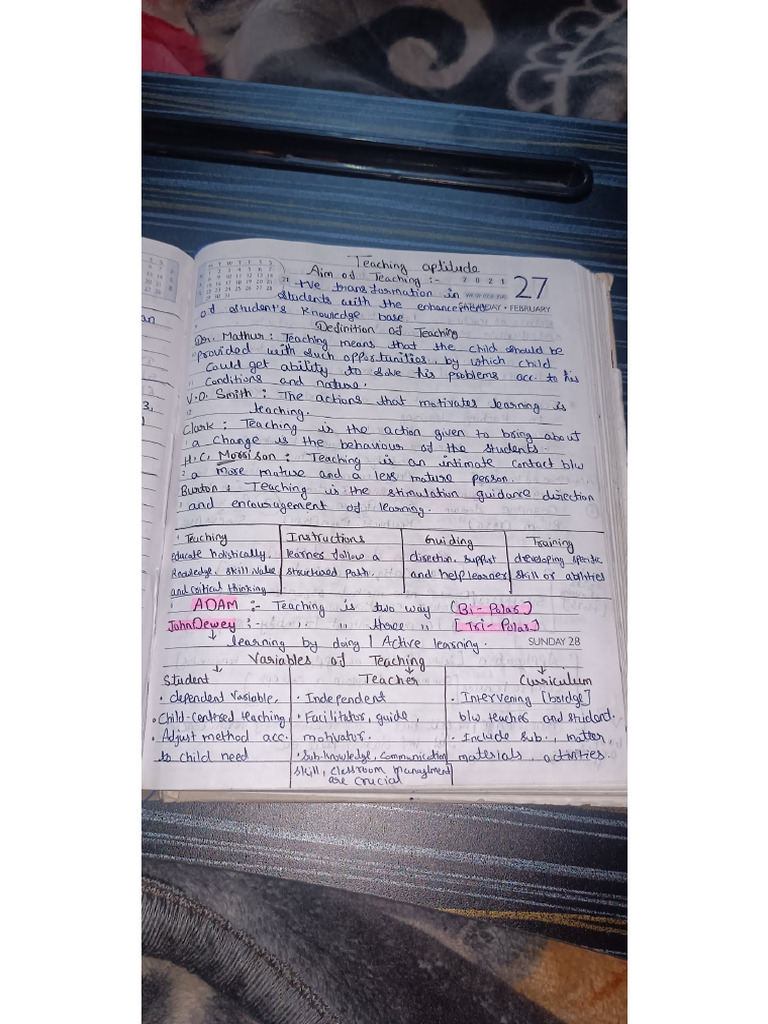 Teaching aptitude
Aim of Teaching :- 2 0 2 1 27
+ve transformation in
students with the enhance DAY • FEBRUARY
of student's knowledge base.
Definition of Teaching
Dr. Mathur : Teaching means that the child should be
provided with such opportunities by which child
could get ability to solve his problems acc. to his
conditions and nature.
V.O. Smith : The actions that motivates learning is
teaching.
Clark : Teaching is the action given to bring about
a change is the behaviour of the students.
H.C. Morrison : Teaching is an intimate contact b/w
a more mature and a less mature person.
Burton : Teaching is the stimulation guidance direction
and encouragement of learning.
Teaching Instructions Guiding Training
educate holistically, learner follow a direction, support developing specific
knowledge, skill value structured path. and help learner skill or abilities
and critical thinking
ADAM :- Teaching is two way (Bi-Polar)
John Dewey :- " " three " [Tri-Polar]
learning by doing | Active learning. SUNDAY 28
Variables of Teaching
Student Teacher Curriculum
• dependent variable, • Independent • Intervening [boidge]
• Child-centred teaching, • Facilitator, guide, b/w teacher and student.
• Adjust method acc. motivator. • Include sub., matter,
to child need • Sub-knowledge, communication materials, activities.
skill, classroom managment
are crucial